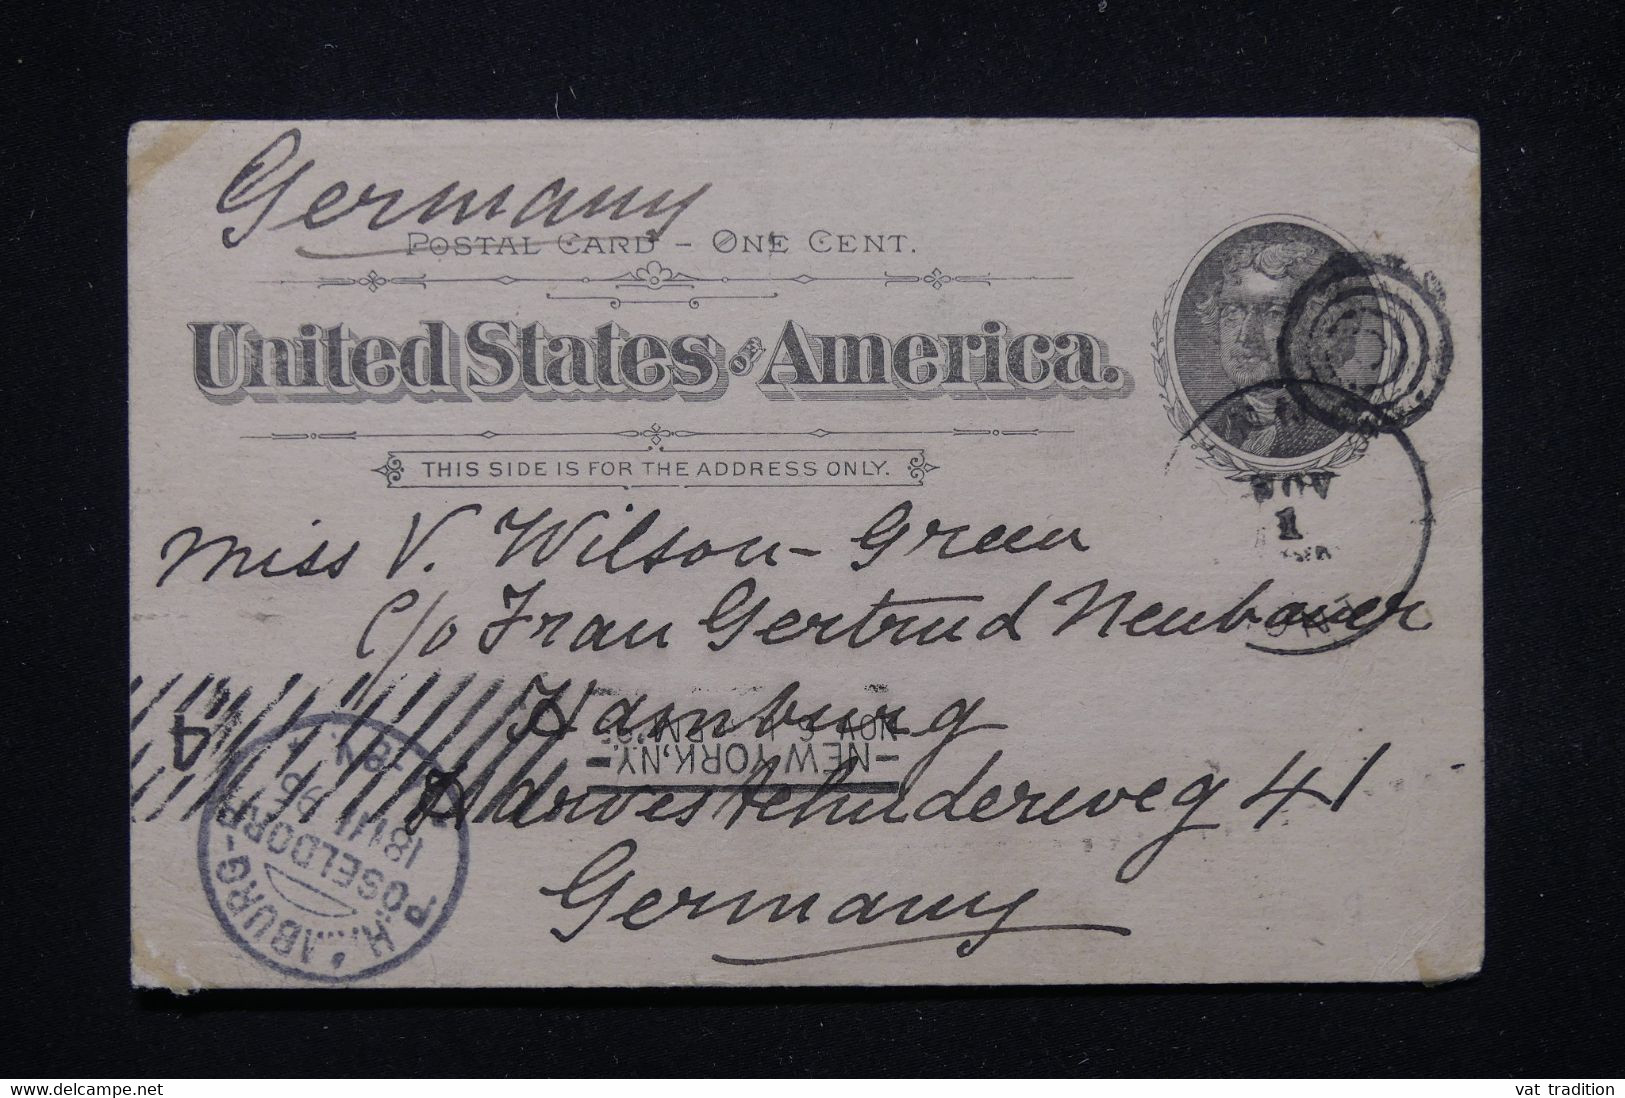 Germany
POSTAL CARD - ONE CENT.
United States OF America.
THIS SIDE IS FOR THE ADDRESS ONLY.
NOV
1
Miss V. Wilson-Green
c/o Frau Gertrud Neubauer
Hamburg
NEW YORK, N.Y.
NOV
Harvestehuderweg 41
Germany
4
HAMBURG-
POSELDORF
18/11 96
-8N.
vat tradition